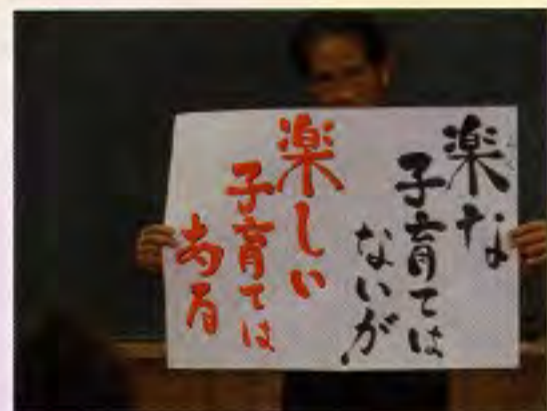 楽な
子育ては
ないが
楽しい
子育ては
ある